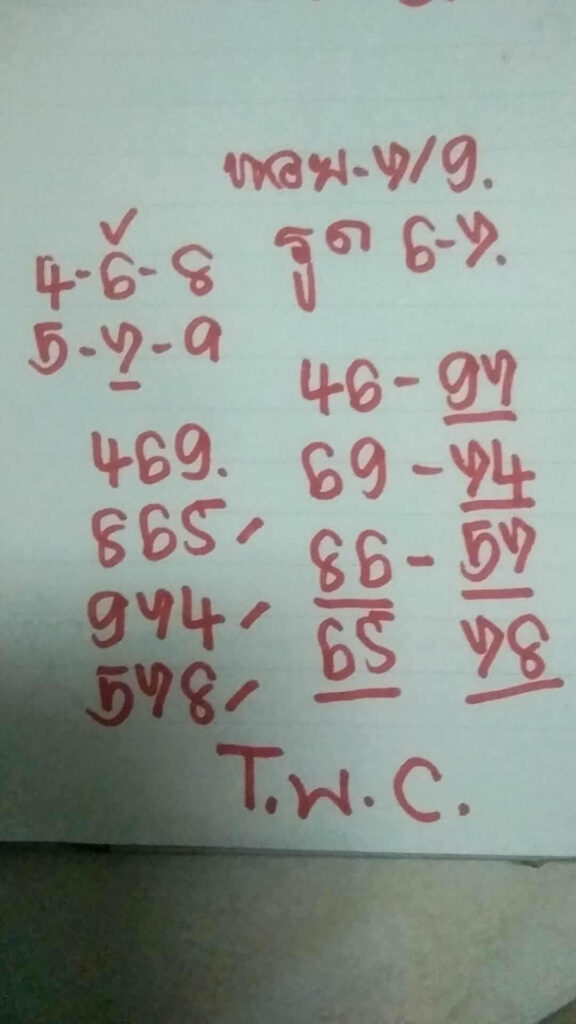 หอย-7/9.
รูด 6-7.
4-6-8
5-7-9
46-97
469. 69-74
865, 86-57
974, 65 78
578,
T.W.C.